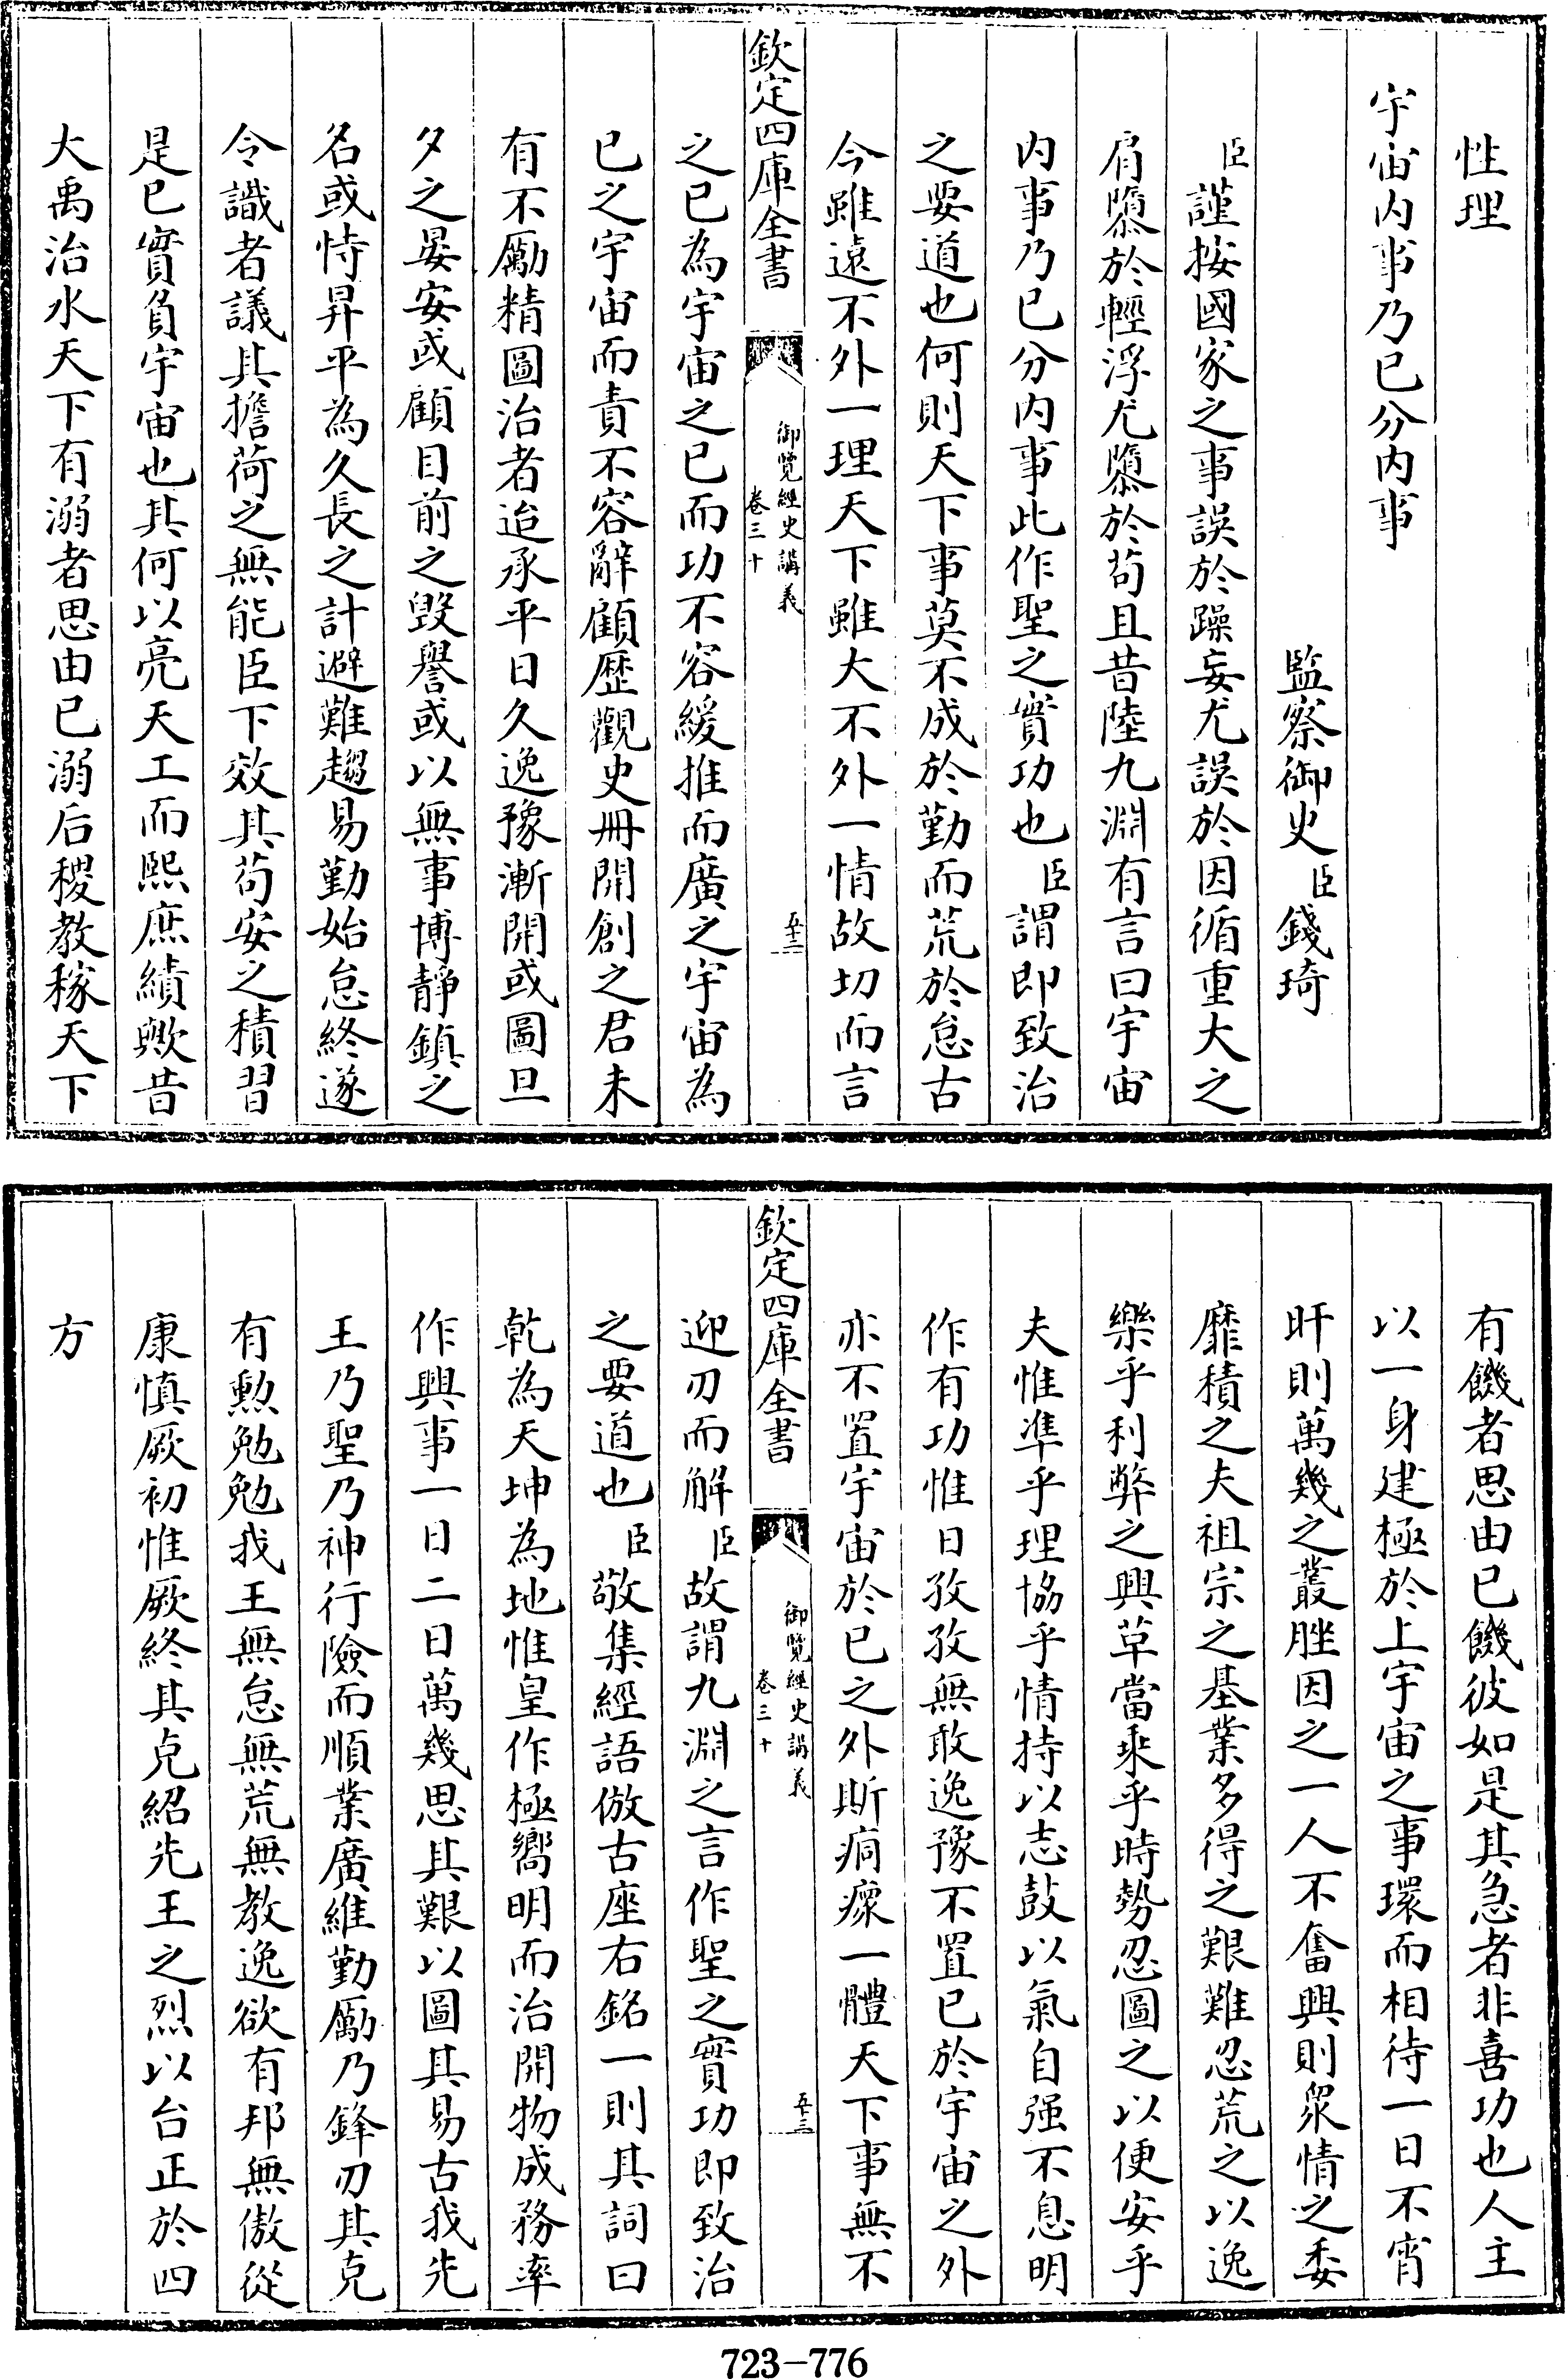 性理
宇宙内事乃已分内事
監察御史臣錢琦
臣謹按國家之事誤於躁妄尤誤於因循重大之
肩隳於輕浮尤隳於苟且昔陸九淵有言曰宇宙
内事乃已分内事此作聖之實功也臣謂即致治
之要道也何則天下事莫不成於勤而荒於怠古
今雖遠不外一理天下雖大不外一情故切而言
欽定四庫全書
御覽經史講義
卷三十
五十二
之已為宇宙之已而功不容緩推而廣之宇宙為
已之宇宙而責不容辭顧歷觀史冊開創之君未
有不勵精圖治者迨承平日久逸豫漸開或圖旦
夕之晏安或顧目前之毀譽或以無事博靜鎮之
名或恃昇平為久長之計避難趨易勤始怠終遂
令識者議其擔荷之無能臣下效其苟安之積習
是已實負宇宙也其何以亮天工而熙庶績歟昔
大禹治水天下有溺者思由已溺后稷教稼天下
有饑者思由已饑彼如是其急者非喜功也人主
以一身建極於上宇宙之事環而相待一日不宵
旰則萬幾之叢脞因之一人不奮興則衆情之委
靡積之夫祖宗之基業多得之艱難忍荒之以逸
樂乎利弊之興革當乘乎時勢忍圖之以便安乎
夫惟準乎理協乎情持以志鼓以氣自强不息明
作有功惟日孜孜無敢逸豫不置已於宇宙之外
亦不置宇宙於已之外斯痌瘝一體天下事無不
欽定四庫全書
御覽經史講義
卷三十
五十三
迎刃而解臣故謂九淵之言作聖之實功即致治
之要道也臣敬集經語倣古座右銘一則其詞曰
乾為天坤為地惟皇作極嚮明而治開物成務率
作興事一日二日萬幾思其艱以圖其易古我先
王乃聖乃神行險而順業廣維勤勵乃鋒刃其克
有勲勉勉我王無怠無荒無教逸欲有邦無傲從
康慎厥初惟厥終其克紹先王之烈以台正於四
方
723-776